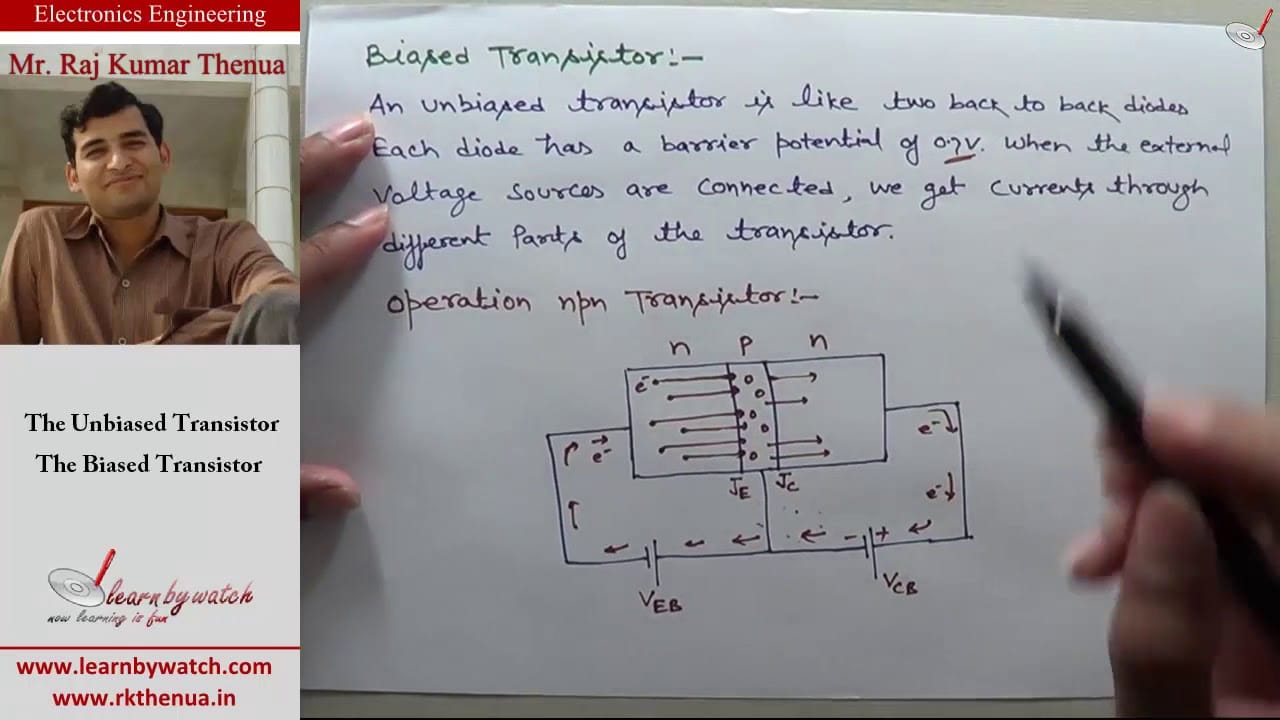 Electronics Engineering
Mr. Raj Kumar Thenua
The Unbiased Transistor
The Biased Transistor
learnbywatch
now learning is fun
www.learnbywatch.com
www.rkthenua.in
Biased Transistor:-
An unbiased transistor is like two back to back diodes
Each diode has a barrier potential of 0.7V. When the external
Voltage sources are connected, we get currents through
different parts of the transistor.
Operation npn Transistor:-
n P n
e-
e-
e-
JE JC
e-
- +
VEB
VCB